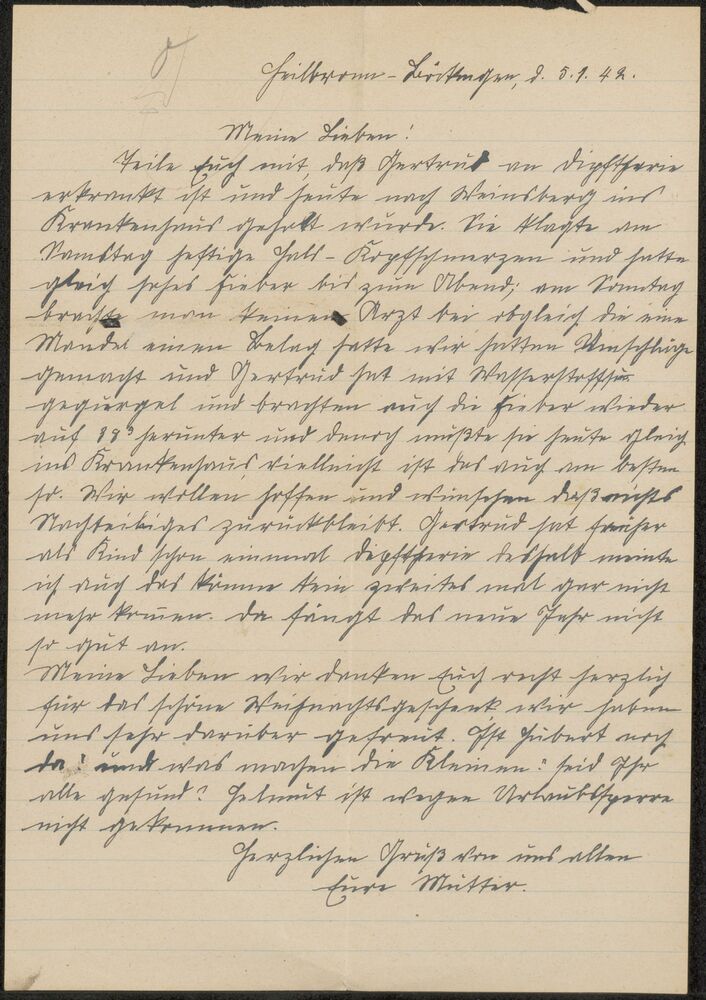 Heilbronn-Böckingen, d. 5.1.42.
Meine Lieben!
Teile Euch mit, daß Gertrud an Dipftherie
erkrankt ist und heute nach Weinsberg ins
Krankenhaus geholt wurde. Sie klagte am
Samstag heftige Hals-Kopfschmerzen und hatte
gleich hohes Fieber bis zum Abend; am Sonntag
brachte man keinen Arzt bei obgleich die eine
Mandel einen Belag hatte wir hatten Umschläge
gemacht und Gertrud hat mit
gegurgel und brachten auch die Fieber wieder
auf 38³ herunter und denoch mußte sie heute gleich
ins Krankenhaus, vielleicht ist das auch am besten
so. Wir wollen hoffen und wünschen daß nichts
Nachteiliges zurückbleibt. Gertrud hat früher
als Kind schon einmal Dipftherie deshalb meinte
ich auch das könne kein zweites mal gar nicht
mehr kommen. Da fängt das neue Jahr nicht
so gut an.
Meine Lieben wir danken Euch recht herzlich
für das schöne Weihnachtsgeschenk wir haben
uns sehr darüber gefreut. Ist Hubert noch
da? und was machen die Kleinen? seid Ihr
alle gesund? Helmut ist wegen Urlaubssperre
nicht gekommen.
Herzlichen Gruß von uns allen
Eure Mutter.